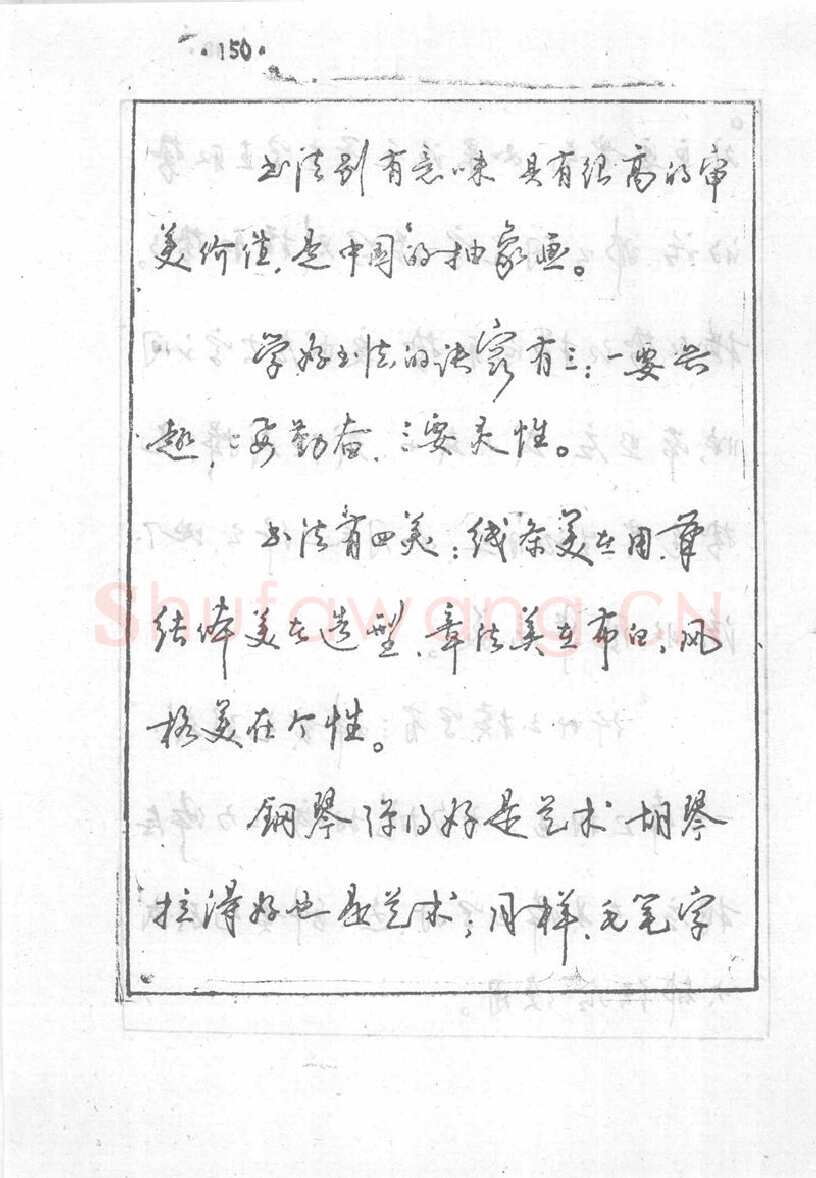 ·150·
书法别有意味 具有很高的审
美价值,是中国的抽象画。
学好书法的诀窍有三:一要兴
趣,二要勤奋,三要灵性。
书法有四美:线条美在用笔
结体美在造型,章法美在布白,风
格美在个性。
钢琴弹得好是艺术 胡琴
拉得好也是艺术;同样,毛笔字
Shufawang.CN